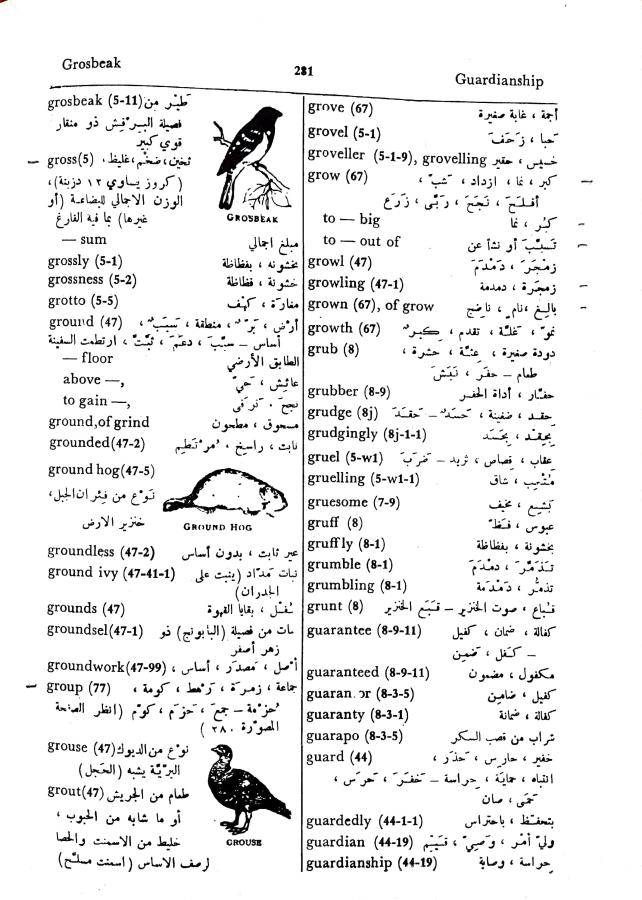 Grosbeak
281
Guardianship
grosbeak (5-11) طير من
فصيلة البرقش ذو منقار
قوي كبير
GROSBEAK
– gross(5) ثخين، ضخم، غليظ، (كروز يساوي ١٢ دزينة)،
الوزن الاجمالي للبضاعة (أو
غيرها) بما فيه الفارغ
— sum مبلغ اجمالي
grossly (5-1) بخشونه ، بفظاظة
grossness (5-2) خشونة ، فظاظة
grotto (5-5) مغارة ، كهف
ground (47) أرض ، بر ، منطقة ، سبب ،
أساس – سبب ، دعم ، ثبت ، ارتطمت السفينة
— floor الطابق الأرضي
above —, عائش ، حي
to gain —, نجح ،
ground,of grind مسحوق ، مطحون
grounded(47-2) ثابت ، راسخ ، مرتطم
ground hog(47-5)
نوع من فئران الجبل،
خنزير الارض
GROUND HOG
groundless (47-2) غير ثابت ، بدون أساس
ground ivy (47-41-1) نبات مداد (ينبت على
الجدران)
grounds (47) ثفل ، بقايا القهوة
groundsel(47-1) نبات من فصيلة (البابونج) ذو
زهر أصفر
groundwork(47-99) أصل ، مصدر ، أساس ،
– group (77) جماعة ، زمرة ، رهط ، كومة ،
حزمة – جمع ، حزم ، كوم (انظر الصفحة
المصورة ٢٨٠ )
grouse (47) نوع من الديوك
البرية يشبه (الحجل)
grout(47) طعام من الجريش
أو ما شابه من الحبوب ،
خليط من الاسمنت والحصا
لرصف الاساس (اسمنت مسلح)
GROUSE
grove (67) أجمة ، غابة صغيرة
grovel (5-1) حبا ، زحف
groveller (5-1-9), grovelling خسيس ، حقير
grow (67) كبر ، نما ، ازداد ، شب ، –
أفلح ، نجح ، ربى ، زرع
to — big كبر ، نما –
to — out of تسبب أو نشأ عن –
growl (47) زمجر ، دمدم
growling (47-1) زمجرة ، دمدمة
grown (67), of grow بالغ ، نام ، ناضج –
growth (67) نمو ، غلة ، تقدم ، كبر
grub (8) دودة صغيرة ، عثة ، حشرة ،
طعام – حفر ، نبش
grubber (8-9) حفار ، أداة الحفر
grudge (8j) حقد ، ضغينة ، حسد – حقد
grudgingly (8j-1-1) بحقد ، بحسد
gruel (5-w1) عقاب ، قصاص ، ثريد – ضرب
gruelling (5-w1-1) متعب ، شاق
gruesome (7-9) بشيع ، مخيف
gruff (8) عبوس ، فظ
gruffly (8-1) بخشونة ، بفظاظة
grumble (8-1) تذمر ، دمدم
grumbling (8-1) تذمر ، دمدمة
grunt (8) قباع ، صوت الخنزير – قبع الخنزير
guarantee (8-9-11) كفالة ، ضمان ، كفيل
– كفل ، ضمن
guaranteed (8-9-11) مكفول ، مضمون
guaran or (8-3-5) كفيل ، ضامن
guaranty (8-3-1) كفالة ، ضمانة
guarapo (8-3-5) شراب من قصب السكر
guard (44) خفير ، حارس ، حذر ،
انتباه ، حماية ، حراسة – خفر ، حرس ،
حمى ، صان
guardedly (44-1-1) بتحفظ ، باحتراس
guardian (44-19) ولي أمر ، وصي ، قيم
guardianship (44-19) حراسة ، وصاية